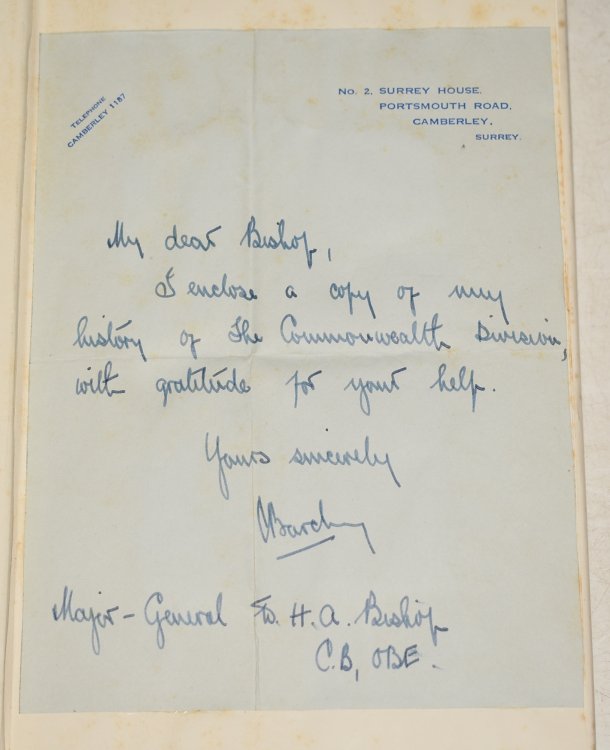 TELEPHONE
CAMBERLEY 1187
No. 2, SURREY HOUSE.
PORTSMOUTH ROAD,
CAMBERLEY,
SURREY.
My dear Bishop,
I enclose a copy of my
history of The Commonwealth Division,
with gratitude for your help.
Yours sincerely
CBarclay
Major-General W. H. A. Bishop
C.B, OBE.